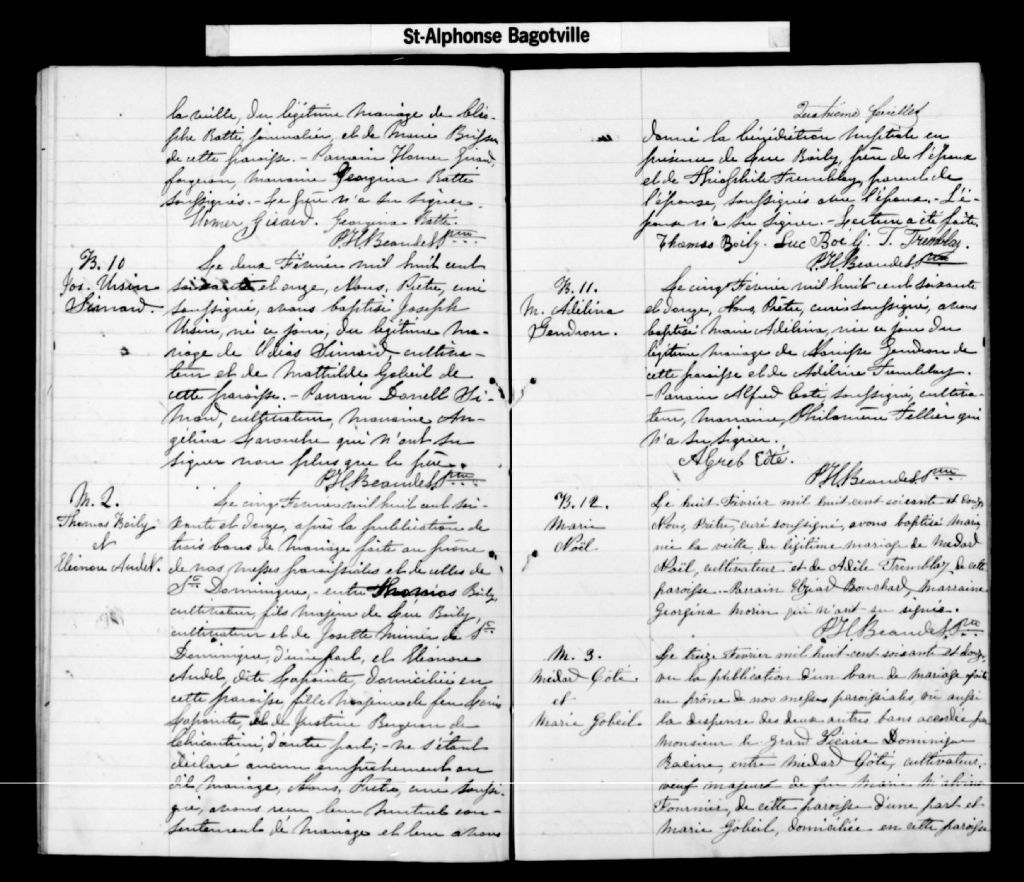 St-Alphonse Bagotville
la veille, du légitime mariage de Cléo-
phe Ratté, journalier, et de Marie Brisson
de cette paroisse. - Parrain Homer Girard,
forgeron, marraine Georgina Ratté
soussignés. - Le père n'a su signer.
Homer Girard. Georgina Ratté
P.H. Beaudet Ptre
B. 10
Jos. Ursin
Simard.
Le deux Février mil huit cent
soixante et onze, Nous, Prêtre, curé
soussigné, avons baptisé Joseph
Ursin, né ce jour, du légitime ma-
riage de Simard, cultiva-
teur et de Mathilde Gobeil de
cette paroisse. - Parrain Si-
mard, cultivateur, marraine An-
gélina Larouche qui n'ont su
signer non plus que le père.
P.H. Beaudet Ptre
M. 2.
Thomas Boily
et
Eléonore Audet.
Le cinq Février mil huit cent soi-
xante et douze, après la publication de
trois bans de mariage faite au prône
de nos messes paroissiales et de celles de
St Dominique, entre Thomas Boily
cultivateur, fils majeur de Luc Boily,
cultivateur et de Josette Munier de St
Dominique, d'une part, et Eléonore
Audet, dite Lapointe, domiciliée en
cette paroisse fille majeure de feu
Lapointe, et de Justine Bergeron de
Chicoutimi, d'autre part; - ne s'étant
déclaré aucun empêchement au
dit mariage, Nous, Prêtre, curé soussi-
gné, avons reçu leur mutuel con-
sentement de mariage et leur avons
Quatrième feuillet
donné la bénédiction nuptiale en
présence de Luc Boily, père de l'époux
et de Théophile Tremblay, parent de
l'épouse, soussignés avec l'épouse. - L'é-
poux n'a su signer. - Lecture a été faite.
Thomas Boily. Luc Boily. T. Tremblay.
P.H. Beaudet Ptre
B. 11.
M. Adélina
Gendron.
Le cinq Février mil huit cent soixante
et douze, Nous, Prêtre, curé soussigné, avons
baptisé Marie Adélina, née ce jour du
légitime mariage de Gendron de
cette paroisse et de Adéline Tremblay.
- Parrain Alfred Coté, soussigné, cultiva-
teur, marraine, Philomène Tellier qui
n'a su signer.
Alfreb Coté.
P.H. Beaudet Ptre
B. 12.
Marie
Noël.
Le huit Février mil huit-cent soixante et douze
Nous, Prêtre, curé soussigné, avons baptisé Marie
née la veille, du légitime mariage de Médard
Noël, cultivateur et de Adèle Tremblay, de cette
paroisse. - Parrain Elzéard Bouchard, Marraine
Georgina Morin qui n'ont su signés.
P.H. Beaudet Ptre
M. 3.
Médar Côté
et
Marie Gobeil
Le treize Février mil huit-cent soixante et douze,
vu la publication d'un ban de mariage faite
au prône de nos messes paroissiales, vû aussi
la dispense des deux autres bans accordée par
Monsieur le Grand Vicaire Dominique
Racine, entre Médar Côté, cultivateur,
veuf majeur de feu Marie Malvina
Fournier, de cette paroisse d'une part et
Marie Gobeil, domiciliée en cette paroisse